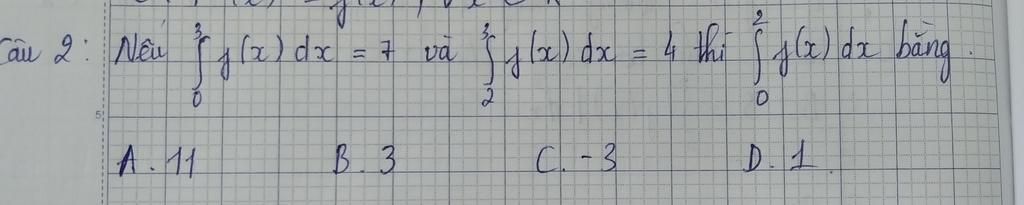 Câu 2: Nếu ∫₀³ f(x) dx = 7 và ∫₂³ f(x) dx = 4 thì ∫₀² f(x) dx bằng.
A. 11 B. 3 C. -3 D. 1